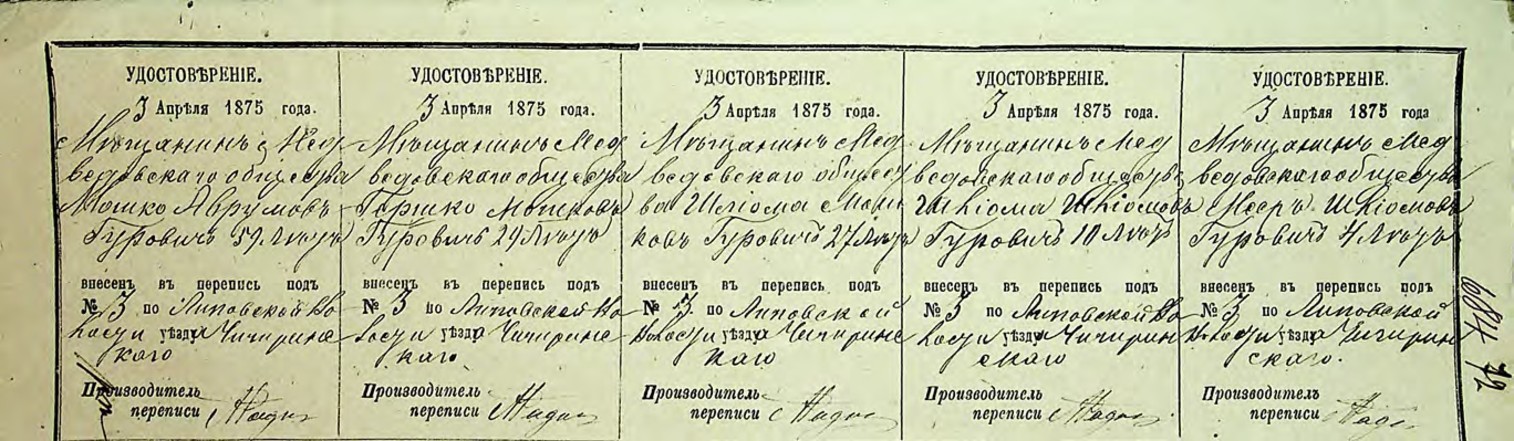 УДОСТОВѢРЕНІЕ.
3 Апрѣля 1875 года.
Мѣщанинъ Мед
ведовскаго общества
Мошко Аврумовъ
Гуровичъ 59 лѣтъ
внесенъ въ перепись подъ
№ 3 по Липовской во
лости уѣзда Чигирин
скаго
Производитель
переписи
УДОСТОВѢРЕНІЕ.
3 Апрѣля 1875 года.
Мѣщанинъ Мед
ведовскаго общества
Гершко Мошковъ
Гуровичъ 29 лѣтъ
внесенъ въ перепись подъ
№ 3 по Липовской во
лости уѣзда Чигирин
скаго
Производитель
переписи
УДОСТОВѢРЕНІЕ.
3 Апрѣля 1875 года.
Мѣщанинъ Мед
ведовскаго общест
ва Шліома Мош
ковъ Гуровичъ 27 лѣтъ
внесенъ въ перепись подъ
№ 3 по Липовской
волости уѣзда Чигирин
скаго
Производитель
переписи
УДОСТОВѢРЕНІЕ.
3 Апрѣля 1875 года.
Мѣщанинъ Мед
ведовскаго общества
Шліома Шліомовъ
Гуровичъ 10 лѣтъ
внесенъ въ перепись подъ
№ 3 по Липовской во
лости уѣзда Чигирин
скаго
Производитель
переписи
УДОСТОВѢРЕНІЕ.
3 Апрѣля 1875 года.
Мѣщанинъ Мед
ведовскаго общества
Мееръ Шліомовъ
Гуровичъ 4 лѣтъ
внесенъ въ перепись подъ
№ 3 по Липовской
волости уѣзда Чигирин
скаго.
Производитель
переписи
72